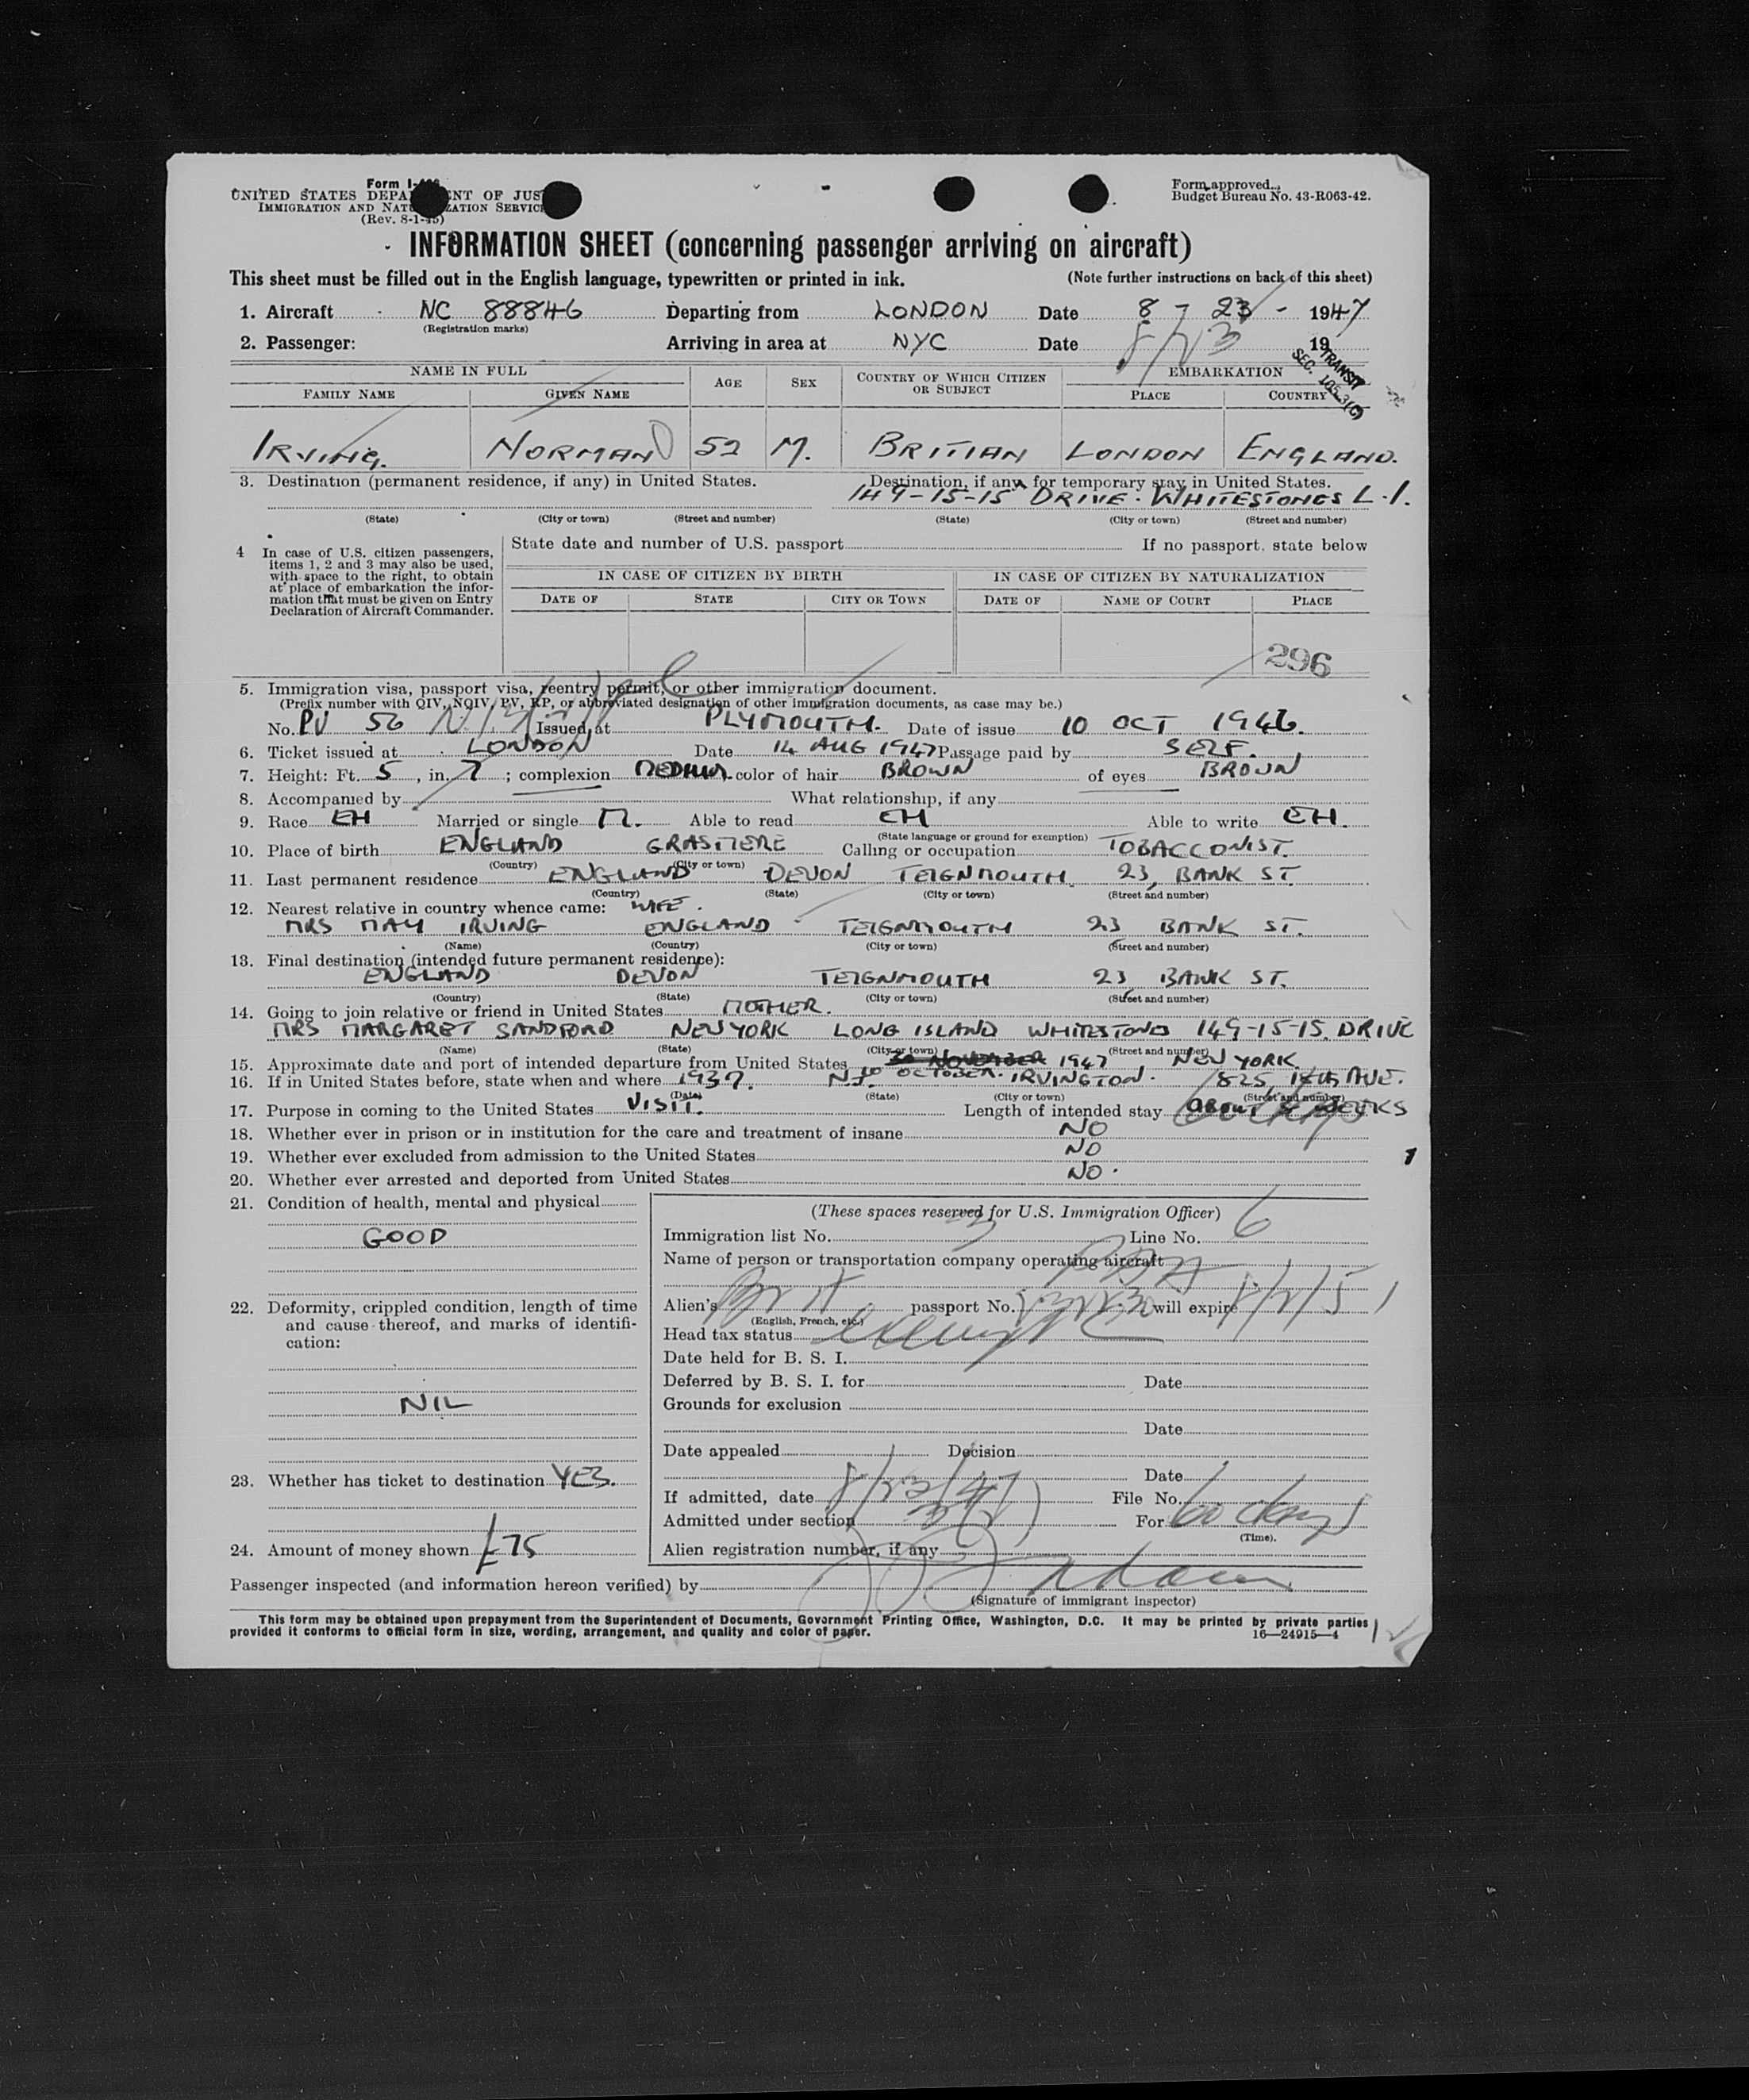 Form I-
UNITED STATES DEPA NT OF JUS
IMMIGRATION AND NATU ZATION SERVIC
(Rev. 8-1-45)
Form approved.
Budget Bureau No. 43-R063-42.
INFORMATION SHEET (concerning passenger arriving on aircraft)
This sheet must be filled out in the English language, typewritten or printed in ink. (Note further instructions on back of this sheet)
1. Aircraft NC 88846 Departing from LONDON Date 8 - 23 - 1947
(Registration marks)
2. Passenger: Arriving in area at NYC Date 8/23 19
TRANSIT
SEC. 105.3(C)
NAME IN FULL AGE SEX COUNTRY OF WHICH CITIZEN OR SUBJECT EMBARKATION
FAMILY NAME GIVEN NAME PLACE COUNTRY
IRVING. NORMAN 52 M. BRITIAN LONDON ENGLAND.
3. Destination (permanent residence, if any) in United States. Destination, if any, for temporary stay in United States.
149-15-15 DRIVE. WHITESTONES L.I.
(State) (City or town) (Street and number) (State) (City or town) (Street and number)
4 In case of U.S. citizen passengers, items 1, 2 and 3 may also be used, with space to the right, to obtain at place of embarkation the information that must be given on Entry Declaration of Aircraft Commander.
State date and number of U.S. passport If no passport, state below
IN CASE OF CITIZEN BY BIRTH IN CASE OF CITIZEN BY NATURALIZATION
DATE OF STATE CITY OR TOWN DATE OF NAME OF COURT PLACE
296
5. Immigration visa, passport visa, reentry permit, or other immigration document.
(Prefix number with QIV, NQIV, PV, RP, or abbreviated designation of other immigration documents, as case may be.)
No. PV 56 Issued at PLYMOUTH. Date of issue 10 OCT 1946.
6. Ticket issued at LONDON Date 14 AUG 1947 Passage paid by SELF.
7. Height: Ft. 5, in. 7; complexion MEDIUM. color of hair BROWN of eyes BROWN
8. Accompanied by What relationship, if any
9. Race EH Married or single M. Able to read EH Able to write EH.
(State language or ground for exemption)
10. Place of birth ENGLAND GRASMERE Calling or occupation TOBACCONIST.
(Country) (City or town)
11. Last permanent residence ENGLAND DEVON TEIGNMOUTH. 23, BANK ST.
(Country) (State) (City or town) (Street and number)
12. Nearest relative in country whence came: WIFE.
MRS MAY IRVING ENGLAND TEIGNMOUTH 23 BANK ST.
(Name) (Country) (City or town) (Street and number)
13. Final destination (intended future permanent residence):
ENGLAND DEVON TEIGNMOUTH 23 BANK ST.
(Country) (State) (City or town) (Street and number)
14. Going to join relative or friend in United States MOTHER.
MRS MARGARET SANDFORD NEW YORK LONG ISLAND WHITESTONES 149-15-15. DRIVE
(Name) (State) (City or town) (Street and number)
15. Approximate date and port of intended departure from United States 30 NOVEMBER 1947 NEW YORK
10 OCTOBER.
16. If in United States before, state when and where 1937. NJ. IRVINGTON. 825, 18th AVE.
(Date) (State) (City or town) (Street and number)
17. Purpose in coming to the United States VISIT. Length of intended stay ABOUT WEEKS
18. Whether ever in prison or in institution for the care and treatment of insane NO
19. Whether ever excluded from admission to the United States NO
20. Whether ever arrested and deported from United States NO.
21. Condition of health, mental and physical
GOOD
22. Deformity, crippled condition, length of time and cause thereof, and marks of identification:
NIL
23. Whether has ticket to destination YES.
24. Amount of money shown £75
(These spaces reserved for U.S. Immigration Officer)
Immigration list No. 3 Line No. 6
Name of person or transportation company operating aircraft PAA
Alien's Brit passport No. will expire 8/2/51
(English, French, etc.)
Head tax status exempt
Date held for B. S. I.
Deferred by B. S. I. for Date
Grounds for exclusion
Date
Date appealed Decision
Date
If admitted, date 8/23/47 File No.
Admitted under section 3(2) For 60 days
(Time).
Alien registration number, if any
Passenger inspected (and information hereon verified) by
(Signature of immigrant inspector)
This form may be obtained upon prepayment from the Superintendent of Documents, Government Printing Office, Washington, D.C. It may be printed by private parties
provided it conforms to official form in size, wording, arrangement, and quality and color of paper. 16—24915—4